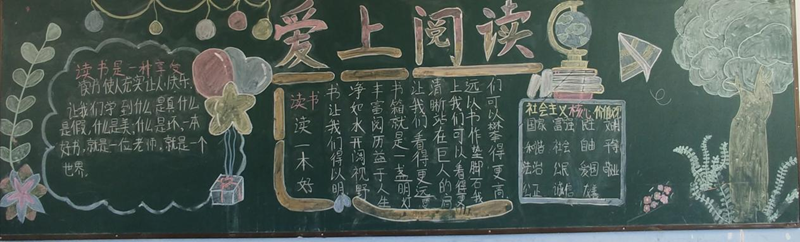 爱上阅读
读书是一种享受
阅读使人充实,让人快乐,
让我们学到什么是真,什么
是假,什么是美,什么是坏,一本
好书,就是一位老师,就是一个
世界。
读书
读一本好
书让我们得以明
净如水开阔视野
丰富阅历益于人生
书箱就是一盏明灯
让我们看得更远更
清晰站在巨人的肩
上我们可以看得更
远以书作垫脚石我
们可以攀得更高
社会主义核心价值观
国家 富强 文明
和谐 社会 自由
法治 公民 爱国 敬业
公正 诚信 友善